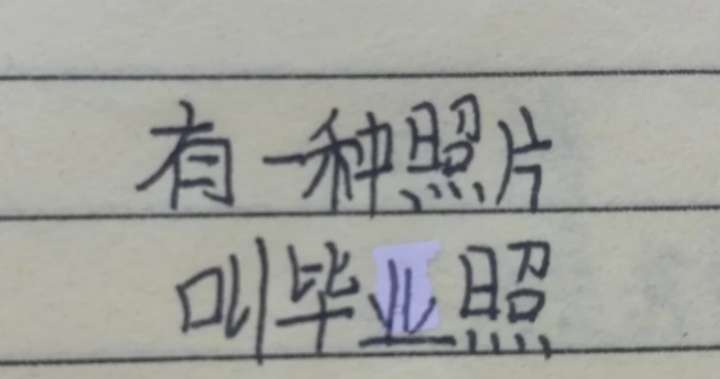 有一种照片
叫毕业照